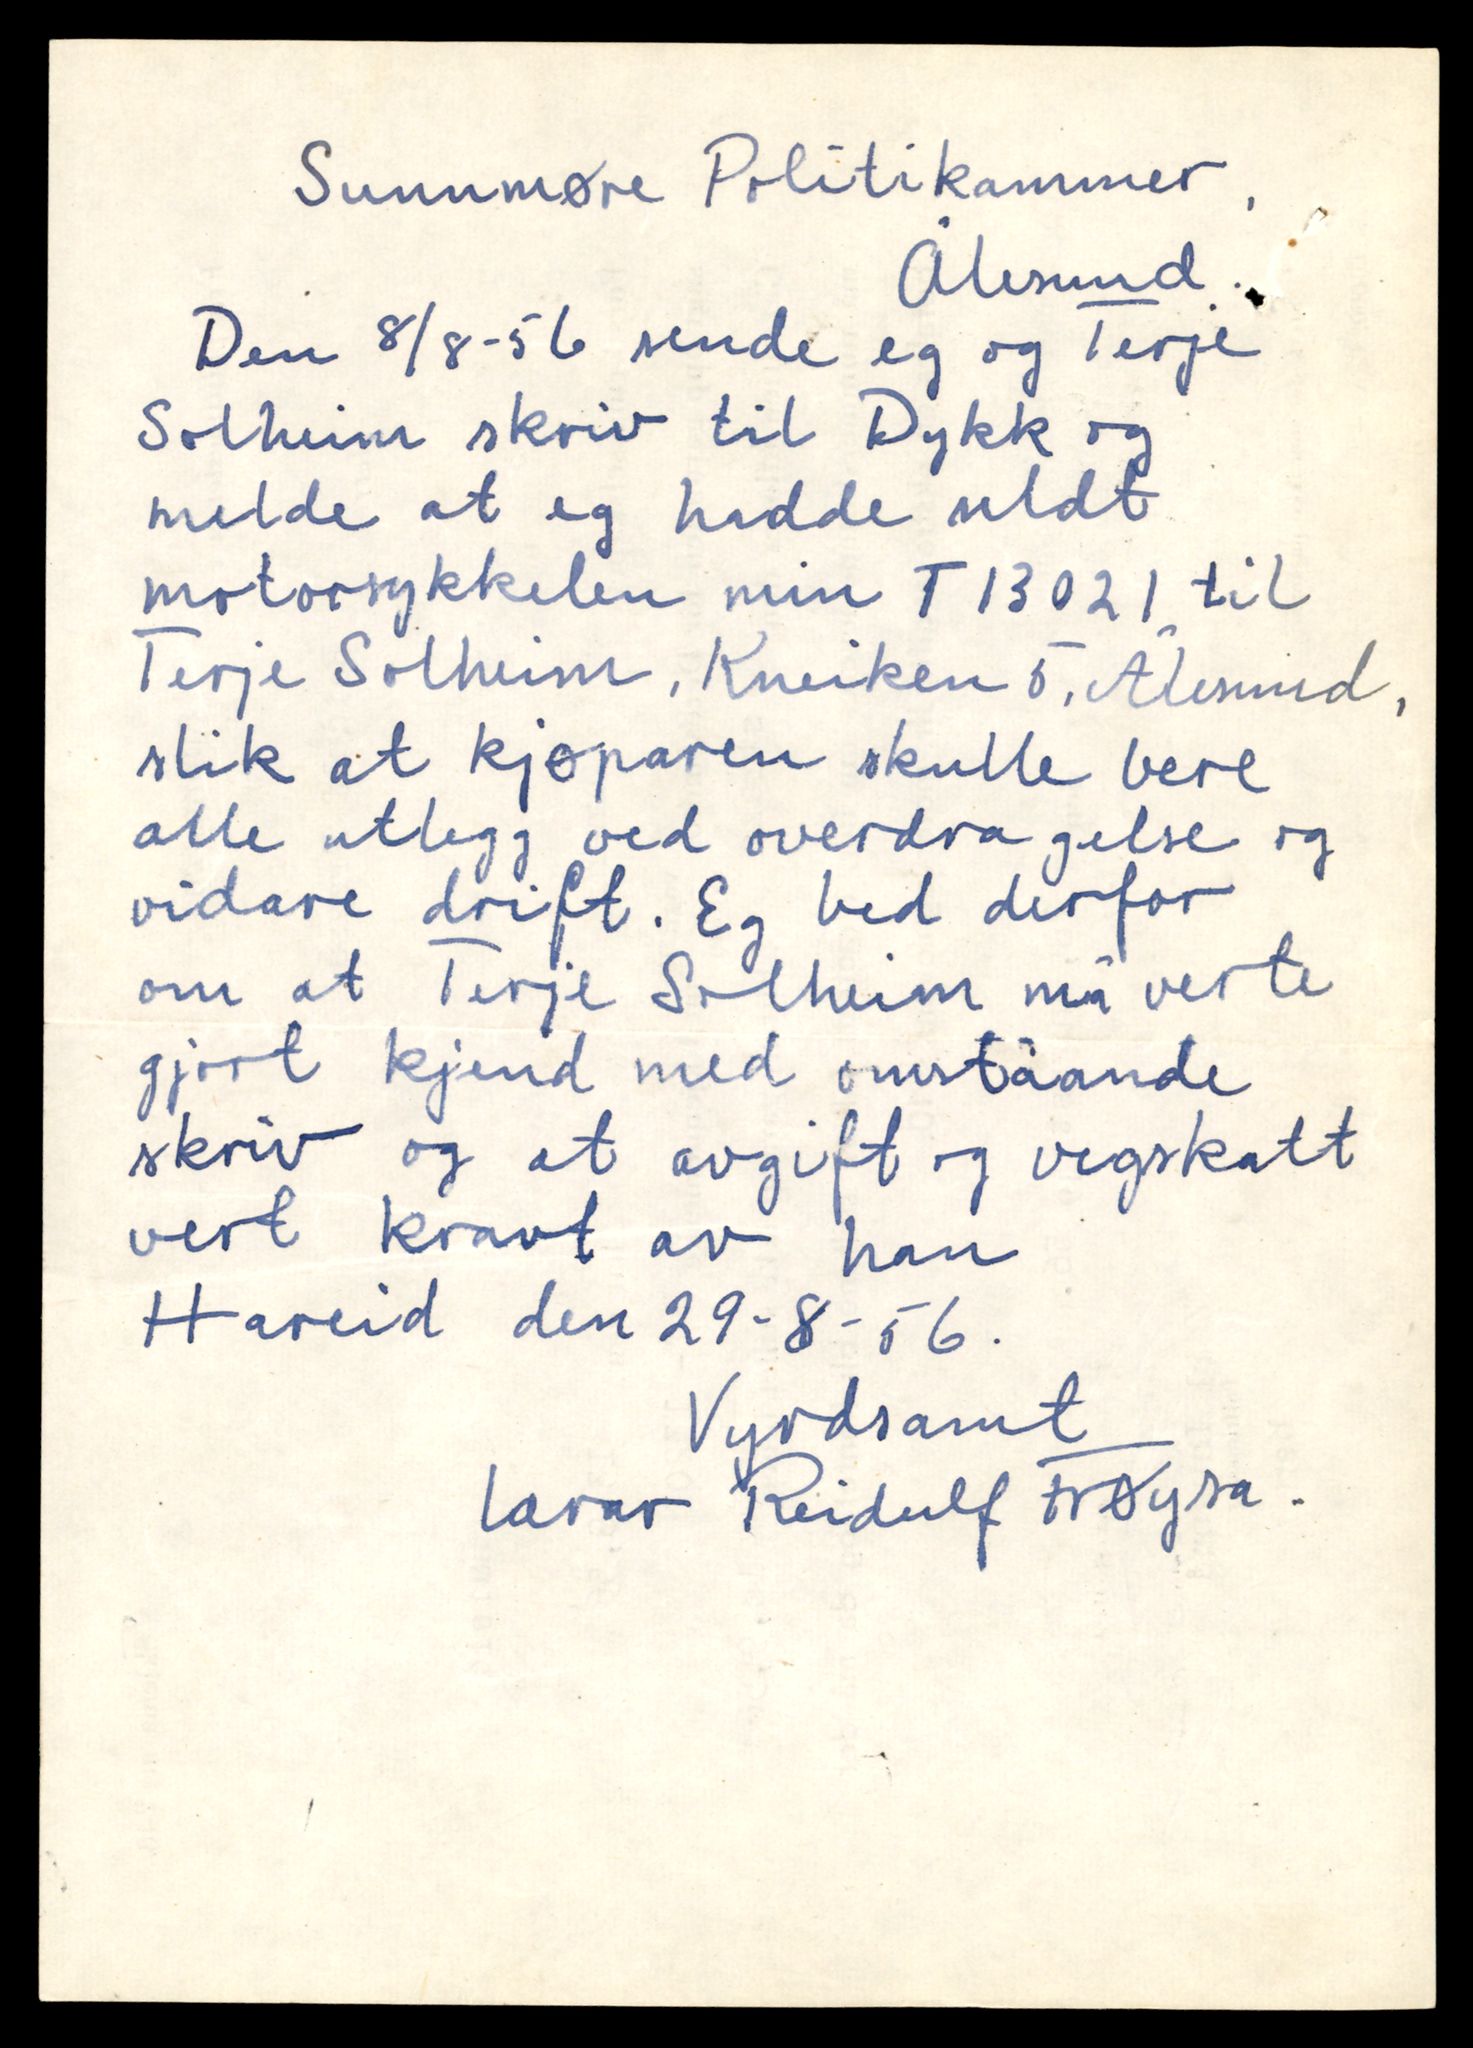 Sunnmøre Politikammer,
Ålesund.
Den 8/8-56 sende eg og Terje
Solheim skriv til Dykk og
melde at eg hadde seldt
motorsykkelen min T 13021 til
Terje Solheim, Kneiken 5, Ålesund,
slik at kjøparen skulle bere
alle utlegg ved overdragelse og
vidare drift. Eg bed derfor
om at Terje Solheim må verte
gjort kjend med omståande
skriv og at avgift og vegskatt
vert kravt av han
Hareid den 29-8-56.
Vyrdsamt
lærar Reidulf Frøysa.